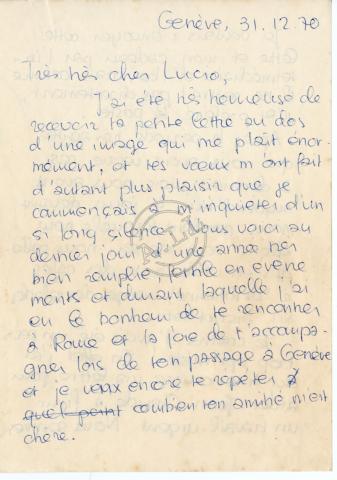 Genève, 31.12.70
Très très cher Lucio,
J'ai été très heureuse de
recevoir ta petite lettre au dos
d'une image qui me plaît énor-
mément, et tes vœux m'ont fait
d'autant plus plaisir que je
commençais à m'inquiéter d'un
si long silence. Nous voici au
dernier jour d'une année très
bien remplie, fertile en évène
ments et durant laquelle j'ai
eu le bonheur de te rencontrer
à Rome et la joie de t'accompa-
gner lors de ton passage à Genève
et je veux encore te répéter à
quel point combien ton amitié m'est
chère.